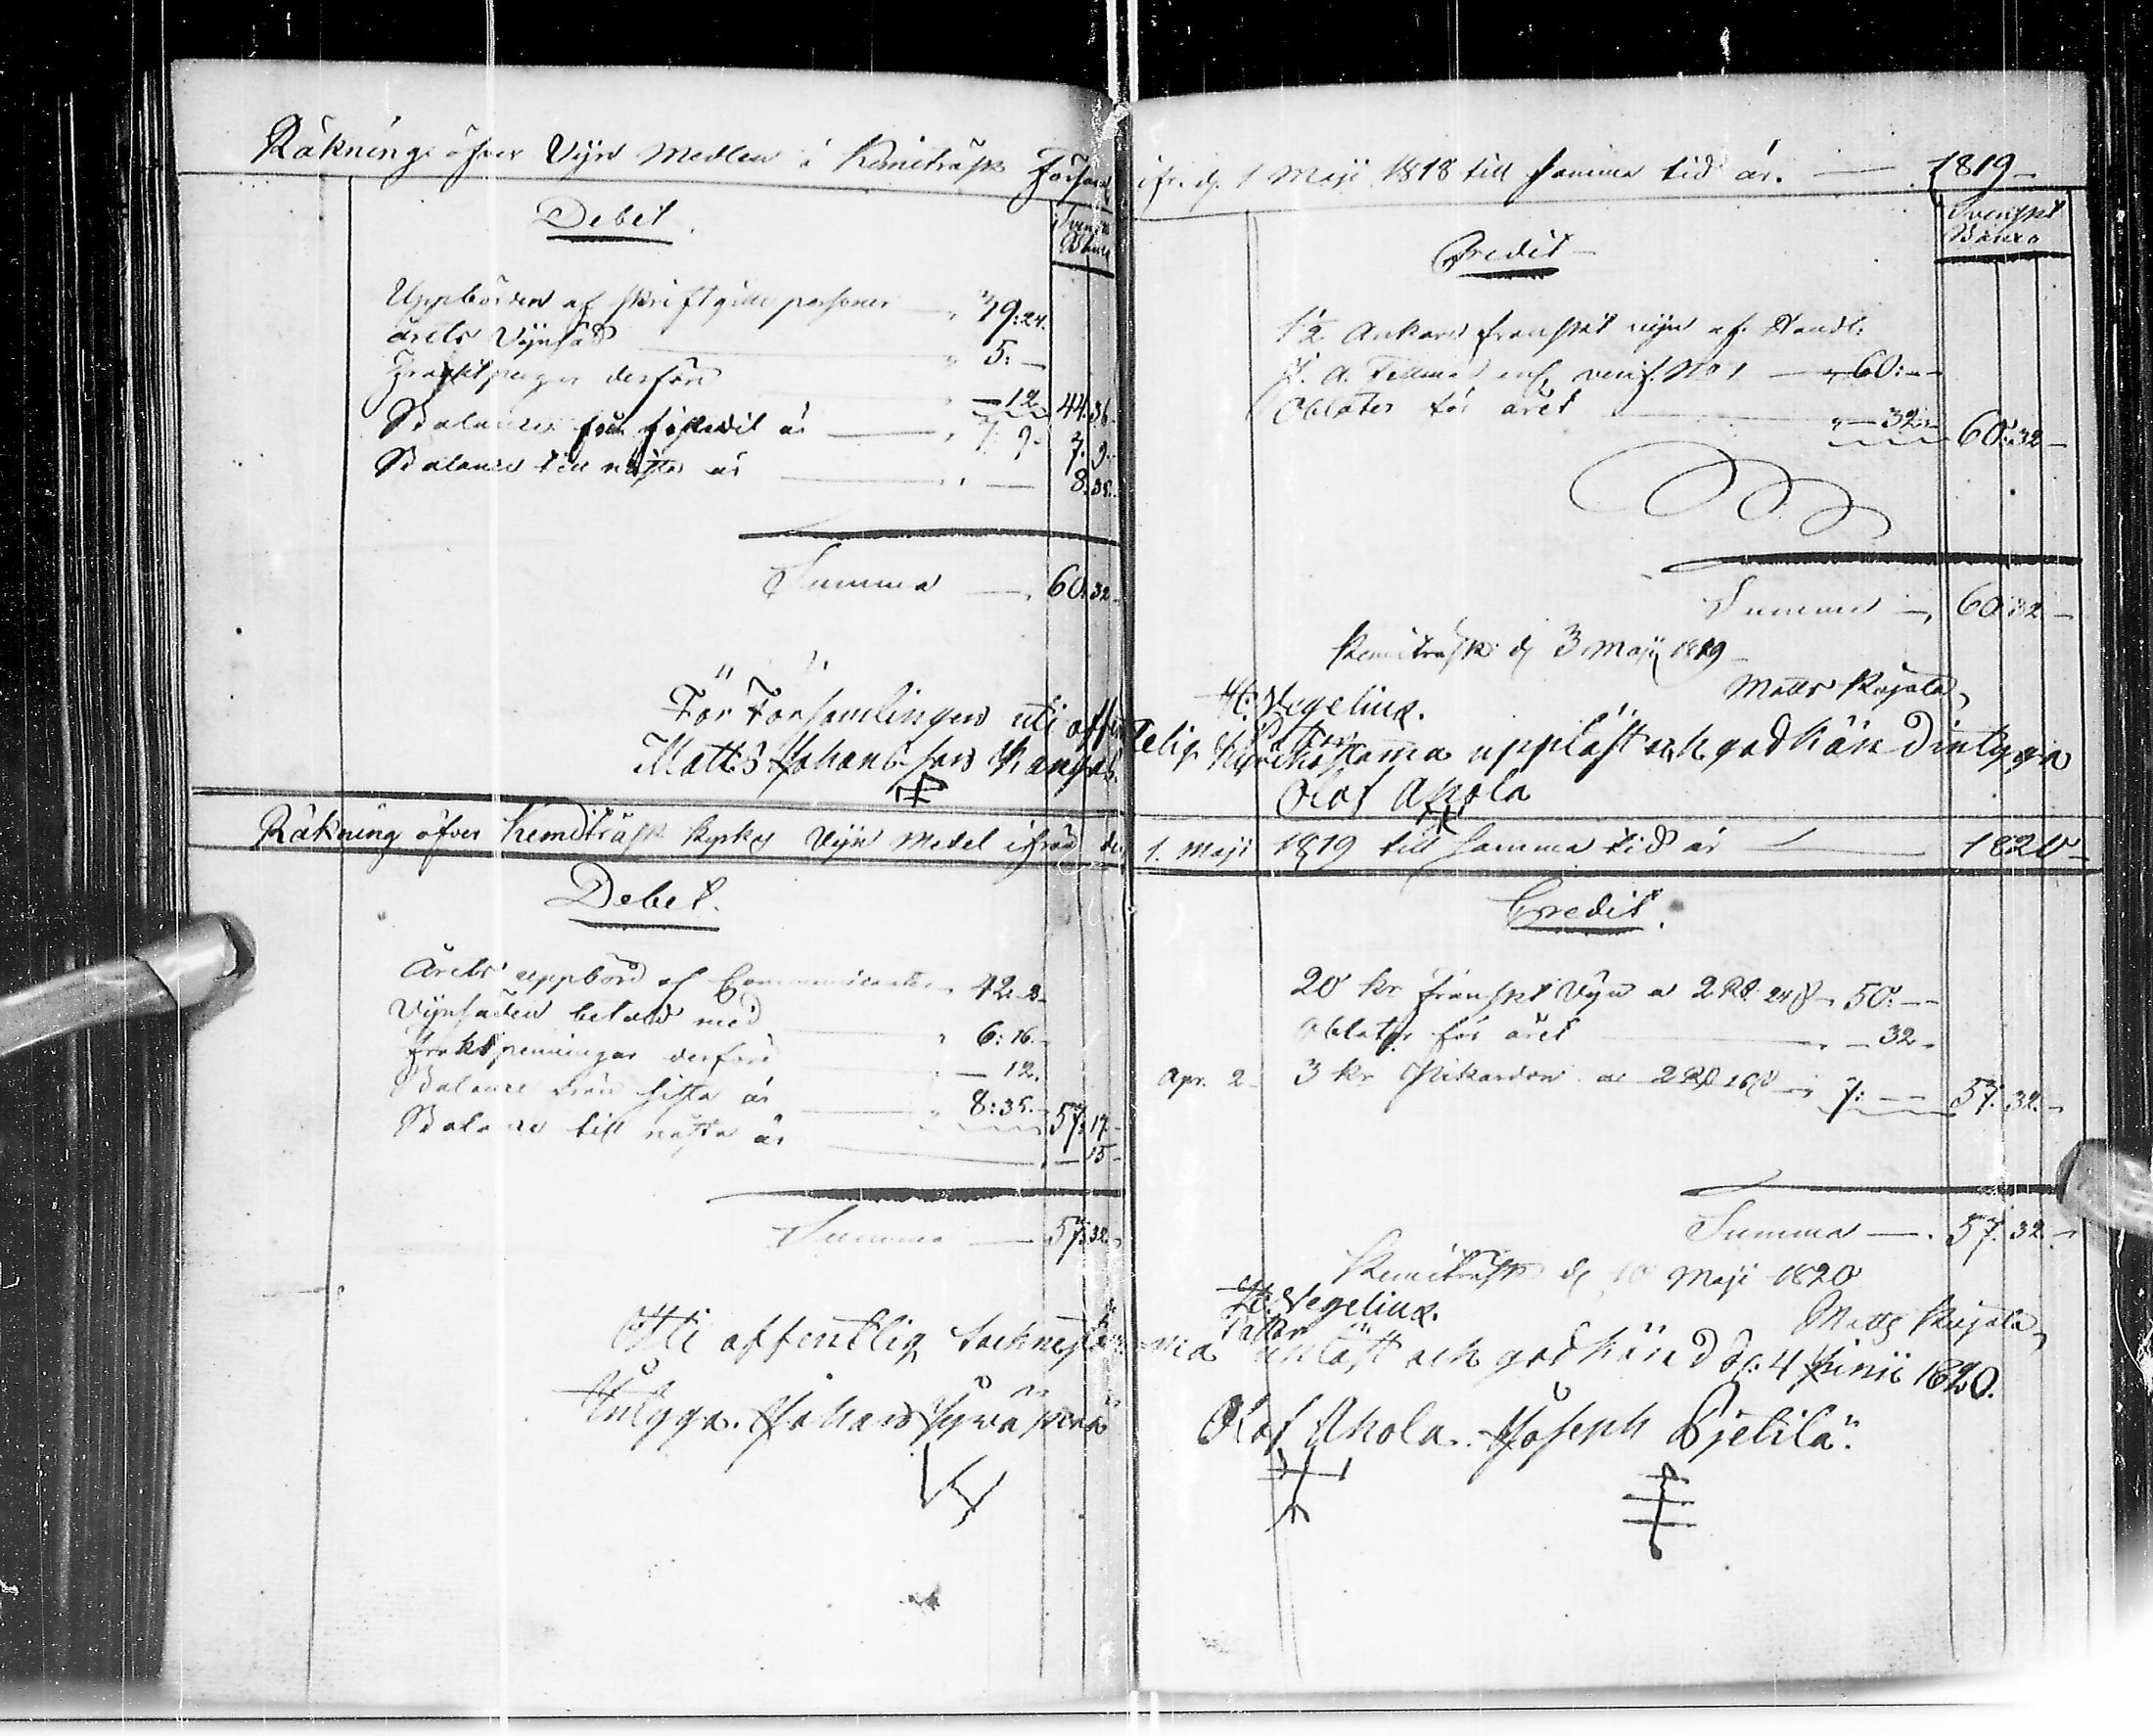 Räkning öfver Vijn Medlen i Kemiträsk Försam
Debet.
Svenskt
Banco
Uppbörden af skriftgille personer — " 39:24.
årets Vijnsäd — " 5:—
Fraktpenger derföre — " — 12. 44:36.
Balance från förledit år — " 7: 9. 7. 9.
Balance till nästa år — 8:35.
Summa — 60:32
För Församlingen uti offen
Matts Johansson Kangas
Räkning öfver Kemiträsk Kyrkas Vijn Medel ifrån den
Debet.
Årets uppbörd af Communicanter " 42. 2.
Vijnsäden betald med " 6:16.
Fraktpenningar derföre " — 12.
Balance från sista år " 8:35. 57:17.
Balance till nästa år — 15
Summa — 57:32.
Uti offentelig Sochnestäm
Intyga. Johan Hyväperä
ifr. d. 1 Maji 1818 till samma tid år. — 1819
Svenskt
Banco
Credit
1½ Ankare franskt vijn af Handl.
J. A. Fellman enl. verif. No 1 — " 60:—
Oblater för året " — 32. 60:32
Summa — 60:32
Kemiträsk d. 3 Maji 1819
H. Wegelius. Matts Kujala
Pastor
telig Kyrkostämma uppläst och godkänd intyga
Olof Ahola
1. Maji 1819 till samma tid år — 1820
Credit.
20 kr franskt Vijn a 2 Rd 24 s " 50:—
Oblater för året — " — 32.
Apr. 2 3 kr Pikardon a 2 Rd 16 s " 7:— 57. 32.
Summa — . 57. 32.
Kemiträsk d. 10 Maji 1820
H. Wegelius. Matts Kujala
Pastor
ma upläst och godkänd d. 4 Junii 1820.
Olof Ahola. Joseph Pjetilä.